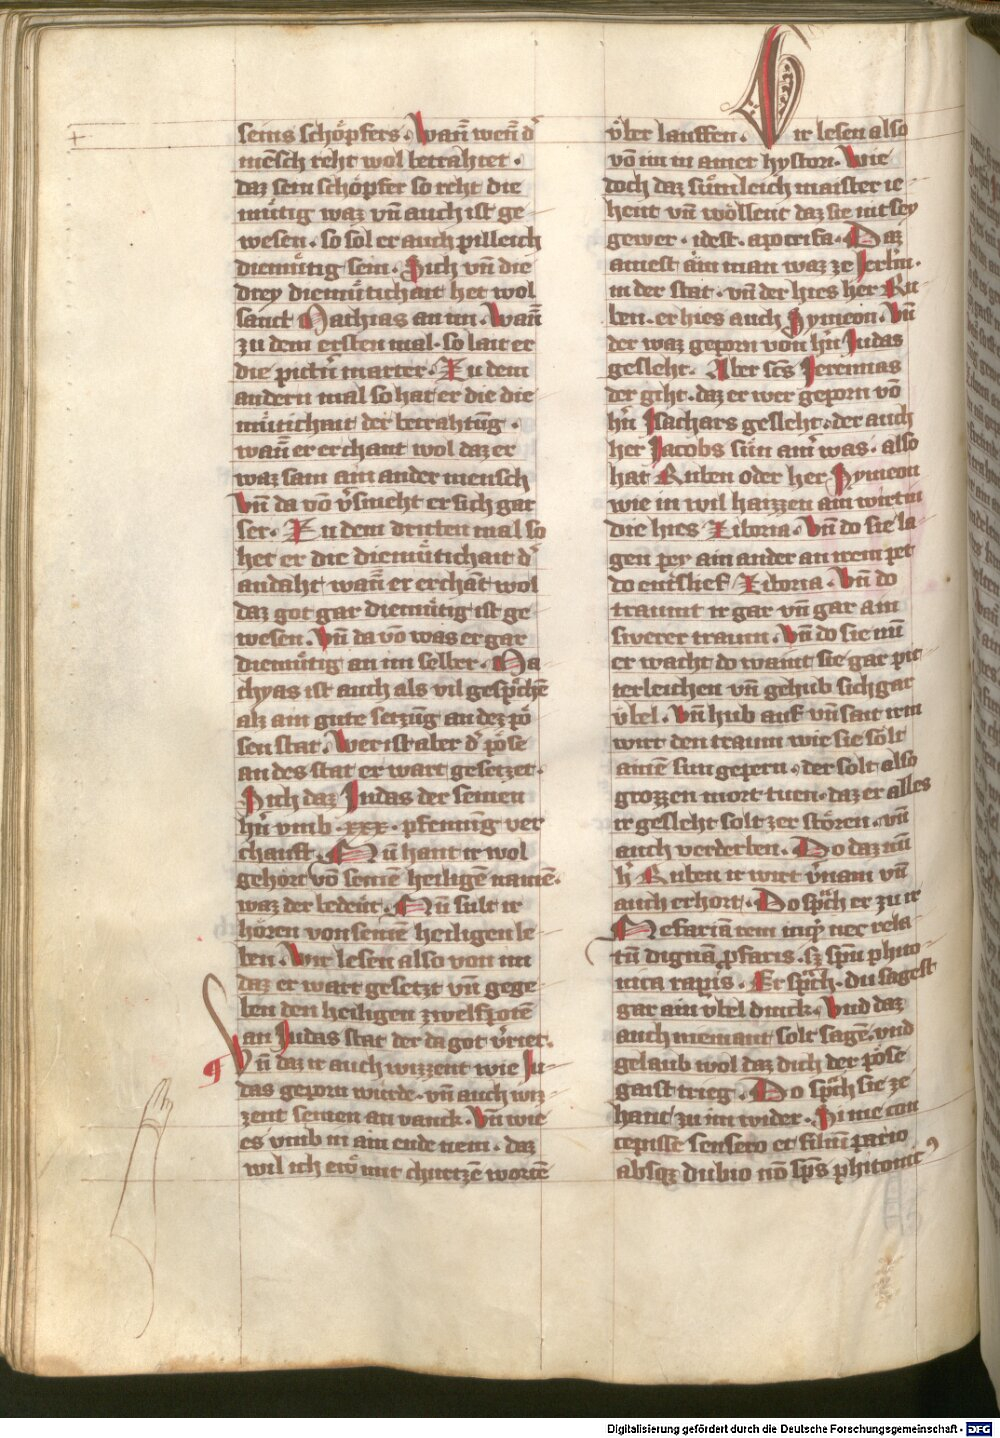 seins schoͤpfers. Wan̄ wen̄ d̕
mēsch reht wol betrahtet.
daz sein schoͤpfer so reht die
muͤtig waz vn̄ auch ist ge-
wesen. so sol er auch pilleich
diemuͤtig sein. Sich vn̄ die
drey diemuͤtichait het wol
sanct Mathias an im. Wan̄
zu dem ersten mal. so lait er
die pittr̄n marter. Zu dem
andern mal so hat er die die
muͤtichait der betrahtūg.
wan̄ er erchant wol daz er
waz sam ain ander mensch
Vn̄ da vō v̕smeht er sich gar
ser. Zu dem dritten mal so
het er die diemuͤtichait d̕
andaht wan̄ er erchāt wol
daz got gar diemuͤtig ist ge-
wesen. Vn̄ da vō was er gar
diemuͤtig an im selber. Ma
thyas ist auch als vil gesprͦchē
alz ain gute setzūg an dez poͤ
sen stat. Wer ist aber d̕ poͤse
an des stat er wart gesetzet.
Sich daz Judas der seinen
hr̄n vmb .xxx. pfennīg ver
chauft. Nu hant ir wol
gehort vō seinē heiligē namē.
waz der bedeut. Nu sult ir
hoͤren von seinē heiligen le-
ben. Wir lesen also von im
daz er wart gesetzt vn̄ gege-
ben den heiligen zwelfpotē
an Judas stat der da got v̕riet.
Vn̄ daz ir auch wizzent wie Ju-
das geporn wurde. vn̄ auch wiz-
zent seinen an vanck. Vn̄ wie
es vmb in ain ende nem. daz
wil ich ew mit churtzē wortē
vͤber lauffen. Wir lesen also
vō im in ainer hystori. Wie
doch daz suͤmleich maister ie-
hent vn̄ woͤllent daz sie nit sey
gewer. idest. apocrifa. Daz
ainest ain man waz ze Jerl̄m.
in der stat. vn̄ der hies her Ru-
ben. er hies auch Symeon. Vn̄
der waz geporn von hr̄n Judas
gesleht. Aber scs̄ Jeremias
der giht. daz er wer geporn vō
hr̄n Isachars gesleht. der auch
her Jacobs suͤn ainr̄ was. also
hat Ruben oder her Symeon
wie in wil haizzen ain wirtin
die hies Ziboria. Vn̄ do sie la-
gen pey ain ander an irem pet
do entslief Ziboria. Vn̄ do
traumt ir gar vn̄ gar ain
swerer traum. Vn̄ do sie nu
er wacht do waint sie gar pit
terleichen vn̄ gehub sich gar
vͤbel. Vn̄ hub auf vn̄ sait irm
wirt den traum wie sie soͤlt
ainē sun gepern. der solt also
grozzen mort tuen. daz er alles
ir gesleht solt zer stoͤren. vn̄
auch verderben. Do daz nu
h̕ Ruben ir wirt v̕nam vn̄
auch erhort. Do sprͣch er zu ir
Nefariā rem inq̄ nec rela
tū dignā profaris. sz spū phito-
nica rapis. Er sprͣch. du sagest
gar ain vbel dinck. Vnd daz
auch niemant solt sagē. vnd
gelaub wol daz dich der poͤse
gaist trieg. Do sprͣch sie ze
hant zu im wider. Si me con
cepisse sensero et filiū pario
absqz dubio nō sp̄s phitonic9
Digitalisierung gefördert durch die Deutsche Forschungsgemeinschaft - DFG